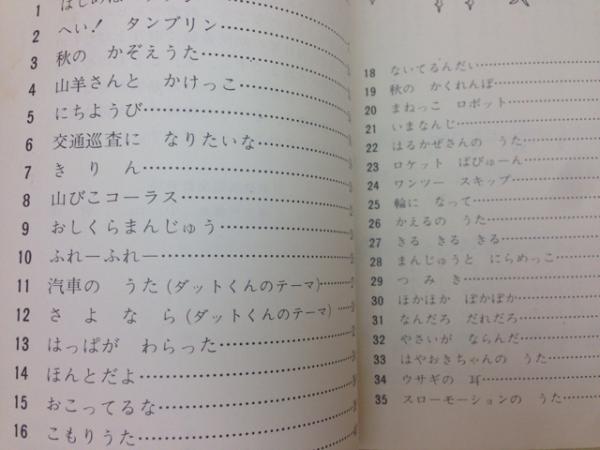 1 はじめは
2 へい! タンブリン
3 秋の かぞえうた
4 山羊さんと かけっこ
5 にちようび
6 交通巡査に なりたいな
7 きりん
8 山びこコーラス
9 おしくらまんじゅう
10 ふれーふれー
11 汽車の うた(ダットくんのテーマ)
12 さよなら(ダットくんのテーマ)
13 はっぱが わらった
14 ほんとだよ
15 おこってるな
16 こもりうた
18 ないてるんだい
19 秋の かくれんぼ
20 まねっこ ロボット
21 いまなんじ
22 はるかぜさんの うた
23 ロケット ばびゅーん
24 ワンツー スキップ
25 輪に なって
26 かえるの うた
27 きる きる きる
28 まんじゅうと にらめっこ
29 つみき
30 ほかほか ぽかぽか
31 なんだろ だれだろ
32 やさいが ならんだ
33 はやおきちゃんの うた
34 ウサギの 耳
35 スローモーションの うた